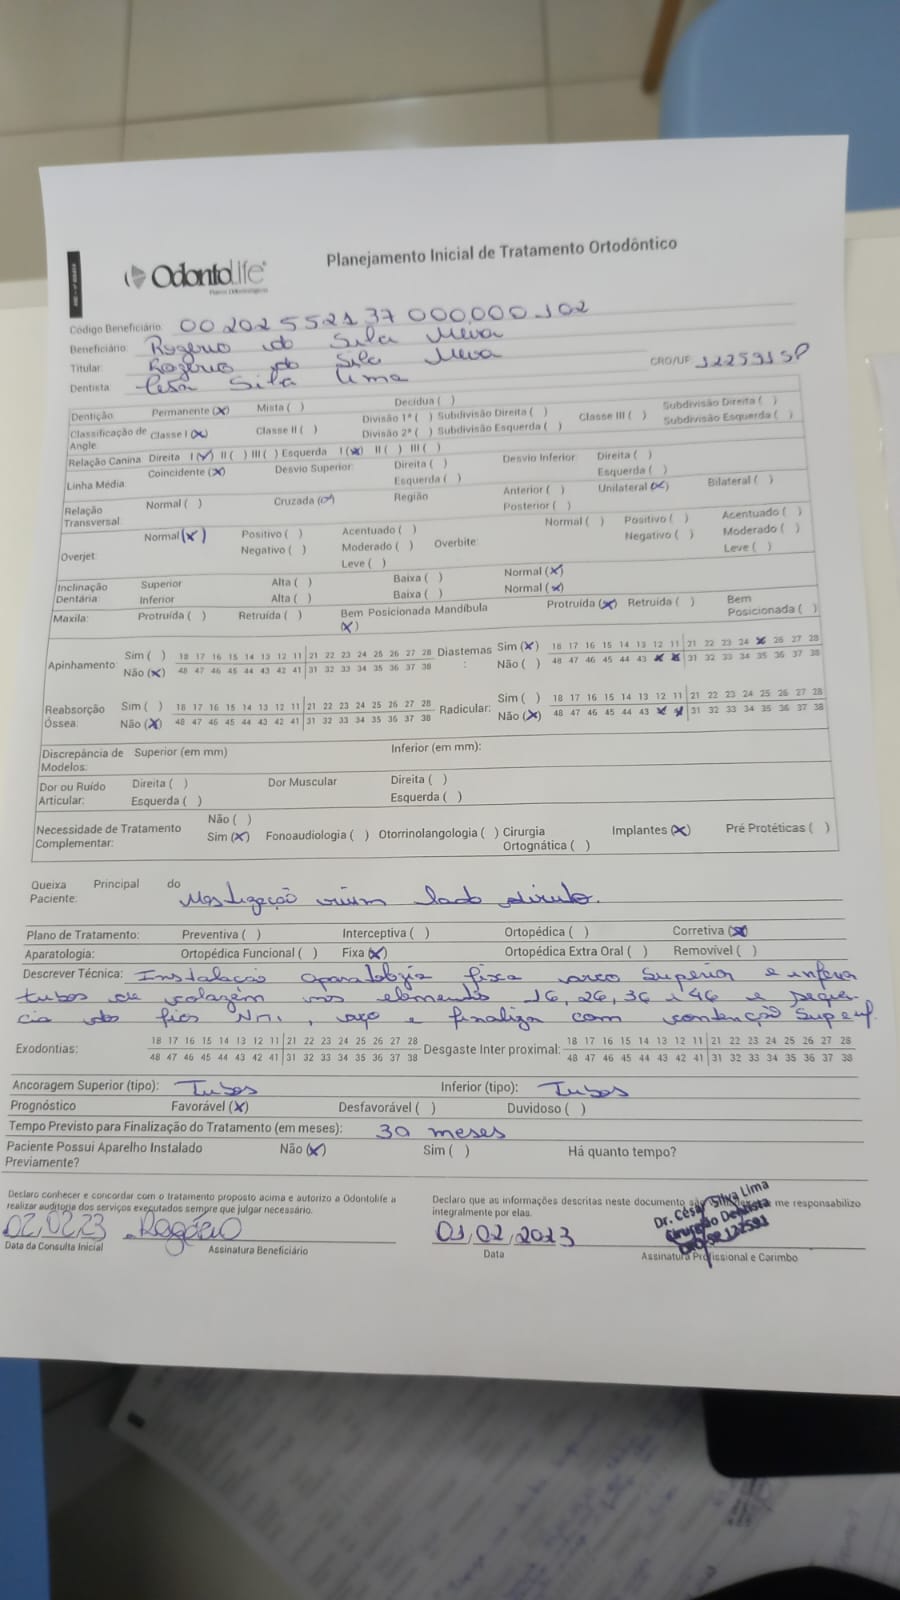 Planejamento Inicial de Tratamento Ortodôntico
OdontoLife
Planos Odontológicos
Código Beneficiário: 00 202 5 5 2137 000.000.102
Beneficiário: Rogério da Silva Meiva
Titular: Rogério da Silva Meiva
Dentista: Cesar Silva Lima CRO/UF: 122591SP
Dentição: Permanente (x) Mista ( ) Decídua ( )
Classificação de Angle: Classe I (x) Classe II ( ) Divisão 1ª ( ) Subdivisão Direita ( ) Classe III ( ) Subdivisão Direita ( )
Divisão 2ª ( ) Subdivisão Esquerda ( ) Subdivisão Esquerda ( )
Relação Canina: Direita I (x) II ( ) III ( ) Esquerda I (x) II ( ) III ( )
Linha Média: Coincidente (x) Desvio Superior: Direita ( ) Desvio Inferior: Direita ( )
Esquerda ( ) Esquerda ( )
Relação Transversal: Normal ( ) Cruzada (x) Região Anterior ( ) Unilateral (x) Bilateral ( )
Posterior ( )
Overjet: Normal (x) Positivo ( ) Acentuado ( ) Overbite: Normal ( ) Positivo ( ) Acentuado ( )
Negativo ( ) Moderado ( ) Negativo ( ) Moderado ( )
Leve ( ) Leve ( )
Inclinação Dentária: Superior Alta ( ) Baixa ( ) Normal (x)
Inferior Alta ( ) Baixa ( ) Normal (x)
Maxila: Protruída ( ) Retruída ( ) Bem Posicionada (x) Mandíbula Protruída (x) Retruída ( ) Bem Posicionada ( )
Apinhamento: Sim ( ) 18 17 16 15 14 13 12 11 21 22 23 24 25 26 27 28 Diastemas: Sim (x) 18 17 16 15 14 13 12 11 21 22 23 24 x 26 27 28
Não (x) 48 47 46 45 44 43 42 41 31 32 33 34 35 36 37 38 Não ( ) 48 47 46 45 44 43 x x 31 32 33 34 35 36 37 38
Reabsorção Óssea: Sim ( ) 18 17 16 15 14 13 12 11 21 22 23 24 25 26 27 28 Radicular: Sim ( ) 18 17 16 15 14 13 12 11 21 22 23 24 25 26 27 28
Não (x) 48 47 46 45 44 43 42 41 31 32 33 34 35 36 37 38 Não (x) 48 47 46 45 44 43 x x 31 32 33 34 35 36 37 38
Discrepância de Modelos: Superior (em mm) Inferior (em mm):
Dor ou Ruído Articular: Direita ( ) Dor Muscular Direita ( )
Esquerda ( ) Esquerda ( )
Necessidade de Tratamento Complementar: Não ( )
Sim (x) Fonoaudiologia ( ) Otorrinolangologia ( ) Cirurgia Ortognática ( ) Implantes (x) Pré Protéticas ( )
Queixa Principal do Paciente: Mastigação ruim lado direito.
Plano de Tratamento: Preventiva ( ) Interceptiva ( ) Ortopédica ( ) Corretiva (x)
Aparatologia: Ortopédica Funcional ( ) Fixa (x) Ortopédica Extra Oral ( ) Removível ( )
Descrever Técnica: Instalação aparatologia fixa arco superior e inferior
tubos de colagem nos elementos 16, 26, 36 e 46 e sequen-
cia dos fios Niti, aço e finaliza com contenção Sup e inf.
Exodontias: 18 17 16 15 14 13 12 11 21 22 23 24 25 26 27 28 Desgaste Inter proximal: 18 17 16 15 14 13 12 11 21 22 23 24 25 26 27 28
48 47 46 45 44 43 42 41 31 32 33 34 35 36 37 38 48 47 46 45 44 43 42 41 31 32 33 34 35 36 37 38
Ancoragem Superior (tipo): Tubos Inferior (tipo): Tubos
Prognóstico Favorável (x) Desfavorável ( ) Duvidoso ( )
Tempo Previsto para Finalização do Tratamento (em meses): 30 meses
Paciente Possui Aparelho Instalado Previamente? Não (x) Sim ( ) Há quanto tempo?
Declaro conhecer e concordar com o tratamento proposto acima e autorizo a Odontolife a
realizar auditoria dos serviços executados sempre que julgar necessário.
02/02/23 Rogério
Data da Consulta Inicial Assinatura Beneficiário
Declaro que as informações descritas neste documento me responsabilizo
integralmente por elas.
01/02/2023
Data Assinatura Profissional e Carimbo
Dr. César Silva Lima
Cirurgião Dentista
CRO-SP 122591